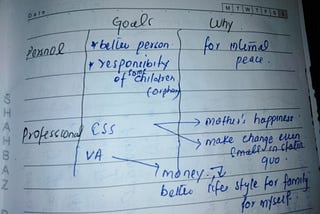 Date
M T W T F S S
Goals Why
Personal * better person. for internal
* responsibity peace.
of some children
(orphan)
Professional CSS → mother's happiness.
→ make change even
small in status
quo.
VA → money. ↴
better life style for family
for myself.
SHAHBAZ